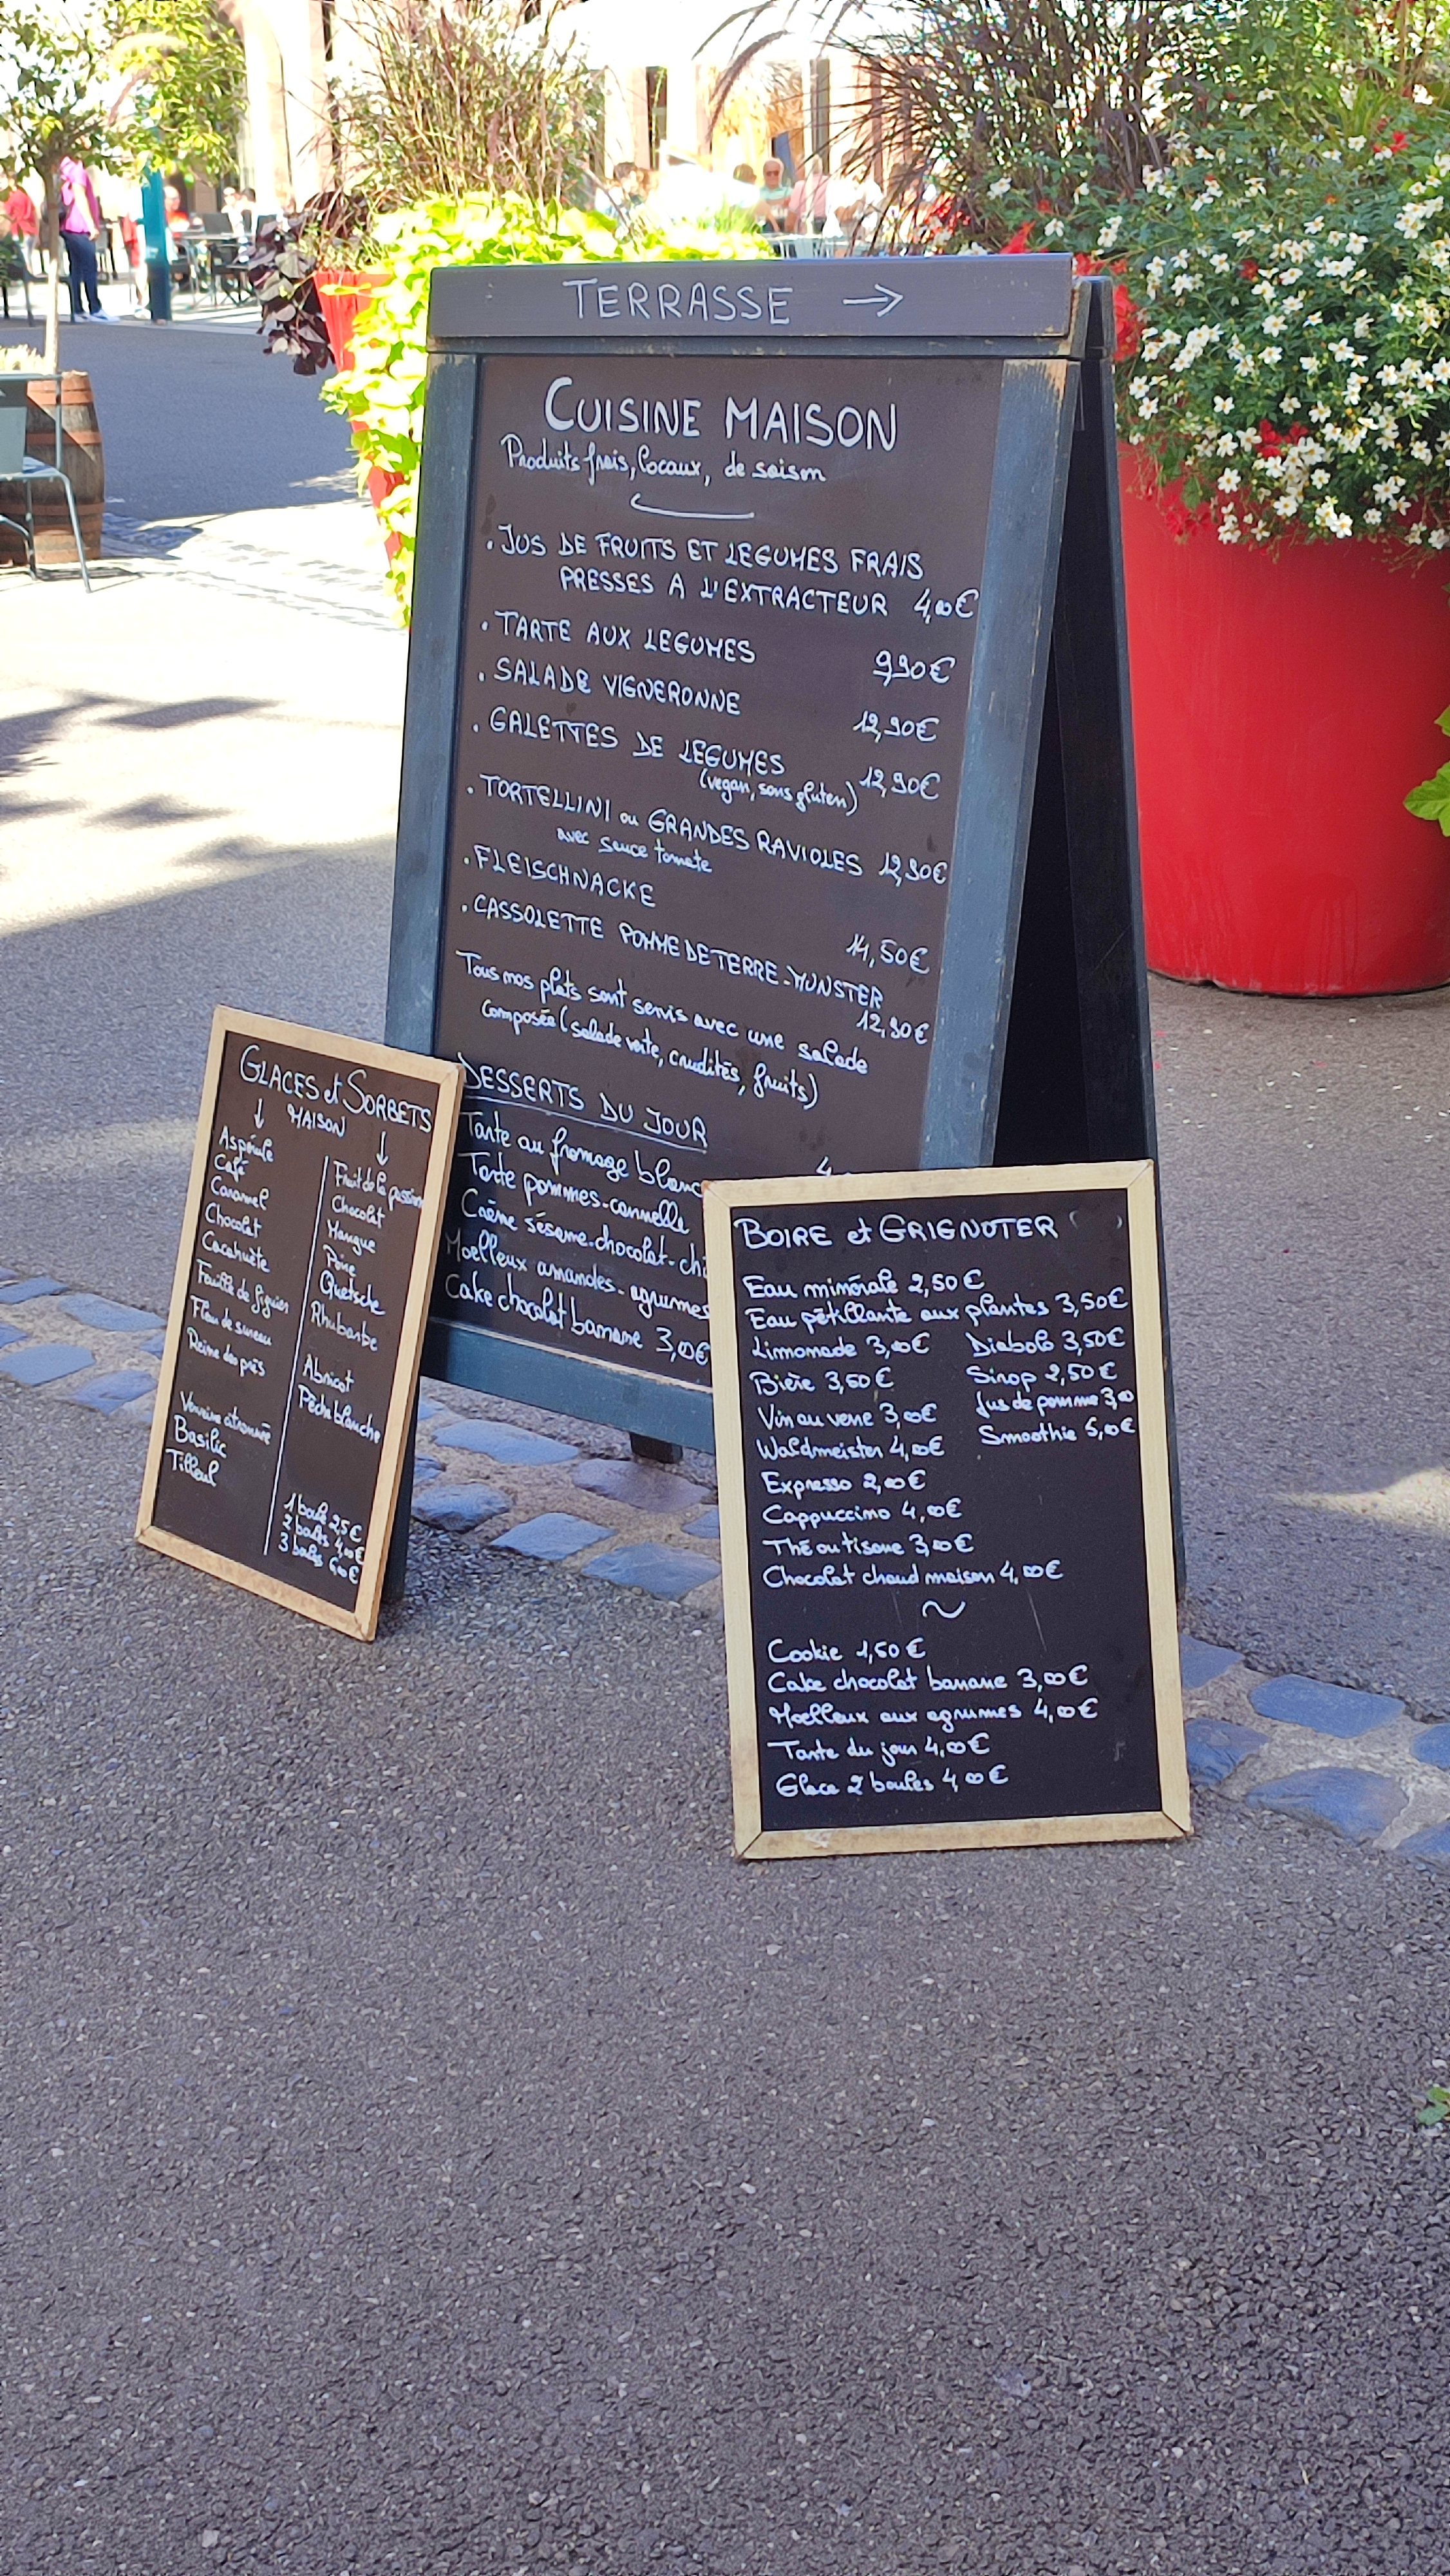 TERRASSE →
CUISINE MAISON
Produits frais, locaux, de saison
. JUS DE FRUITS ET LEGUMES FRAIS
PRESSES A L'EXTRACTEUR 4,00€
. TARTE AUX LEGUMES 9,90€
. SALADE VIGNERONNE 12,90€
. GALETTES DE LEGUMES 12,90€
(vegan, sans gluten)
. TORTELLINI ou GRANDES RAVIOLES 12,90€
avec sauce tomate
. FLEISCHNACKE 14,50€
. CASSOLETTE POMME DE TERRE - MUNSTER
12,90€
Tous nos plats sont servis avec une salade
composée (salade verte, crudités, fruits)
DESSERTS DU JOUR
Tarte au fromage blanc 4
Tarte pommes-cannelle
Crème sésame-chocolat-chi
Moelleux amandes-agrumes
Cake chocolat banane 3,00€
GLACES et SORBETS
MAISON
↓
Aspérule
Café
Caramel
Chocolat
Cacahuète
Feuille de figuier
Fleur de sureau
Reine des prés
Verveine citronnée
Basilic
Tilleul
↓
Fruit de la passion
Chocolat
Mangue
Poire
Quetsche
Rhubarbe
Abricot
Pêche blanche
1 boule 2,5€
2 boules 4,00€
3 boules 6,00€
BOIRE et GRIGNOTER
Eau minérale 2,50€
Eau pétillante aux plantes 3,50€
Limonade 3,00€ Diabolo 3,50€
Bière 3,50€ Sirop 2,50€
Vin au verre 3,00€ Jus de pomme 3,00
Waldmeister 4,00€ Smoothie 5,00€
Expresso 2,00€
Cappuccino 4,00€
Thé ou tisane 3,00€
Chocolat chaud maison 4,00€
~
Cookie 1,50€
Cake chocolat banane 3,00€
Moelleux aux agrumes 4,00€
Tarte du jour 4,00€
Glace 2 boules 4,00€